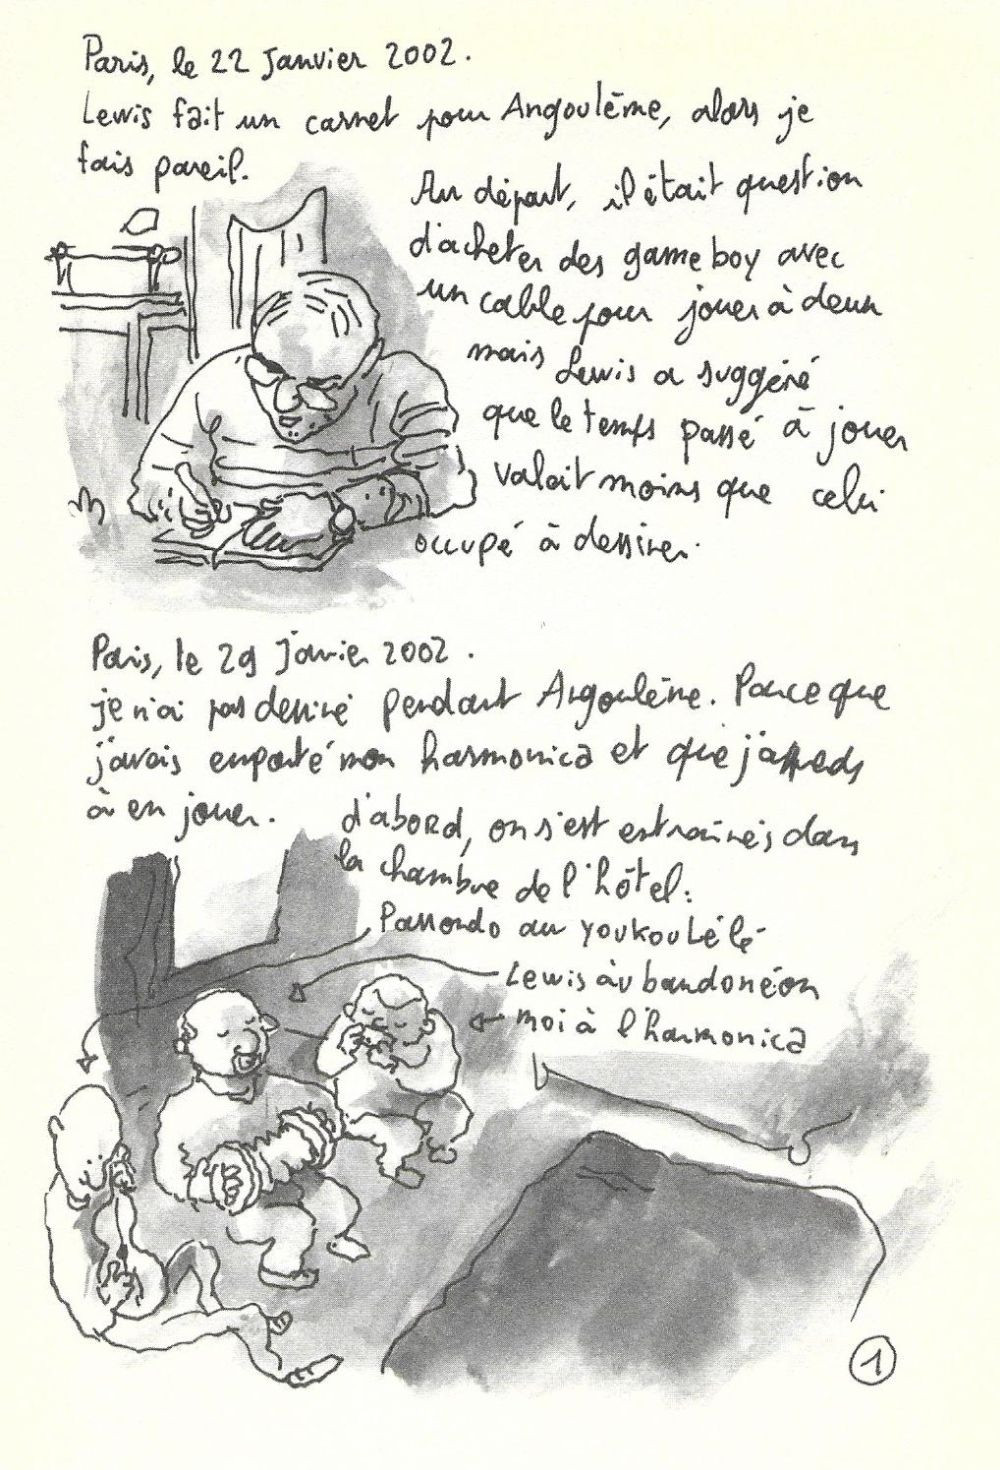 Paris, le 22 Janvier 2002.
Lewis fait un carnet pour Angoulême, alors je
fais pareil.
Au départ, il était question
d'acheter des game boy avec
un cable pour jouer à deux
mais Lewis a suggéré
que le temps passé à jouer
valait moins que celui
occupé à dessiner.
Paris, le 29 Janvier 2002.
je n'ai pas dessiné pendant Angoulême. Parce que
j'avais emporté mon harmonica et que j'apprends
à en jouer.
d'abord, on s'est entraînés dans
la chambre de l'hôtel:
Passondo au youkoulélé
Lewis au bandonéon
moi à l'harmonica
1